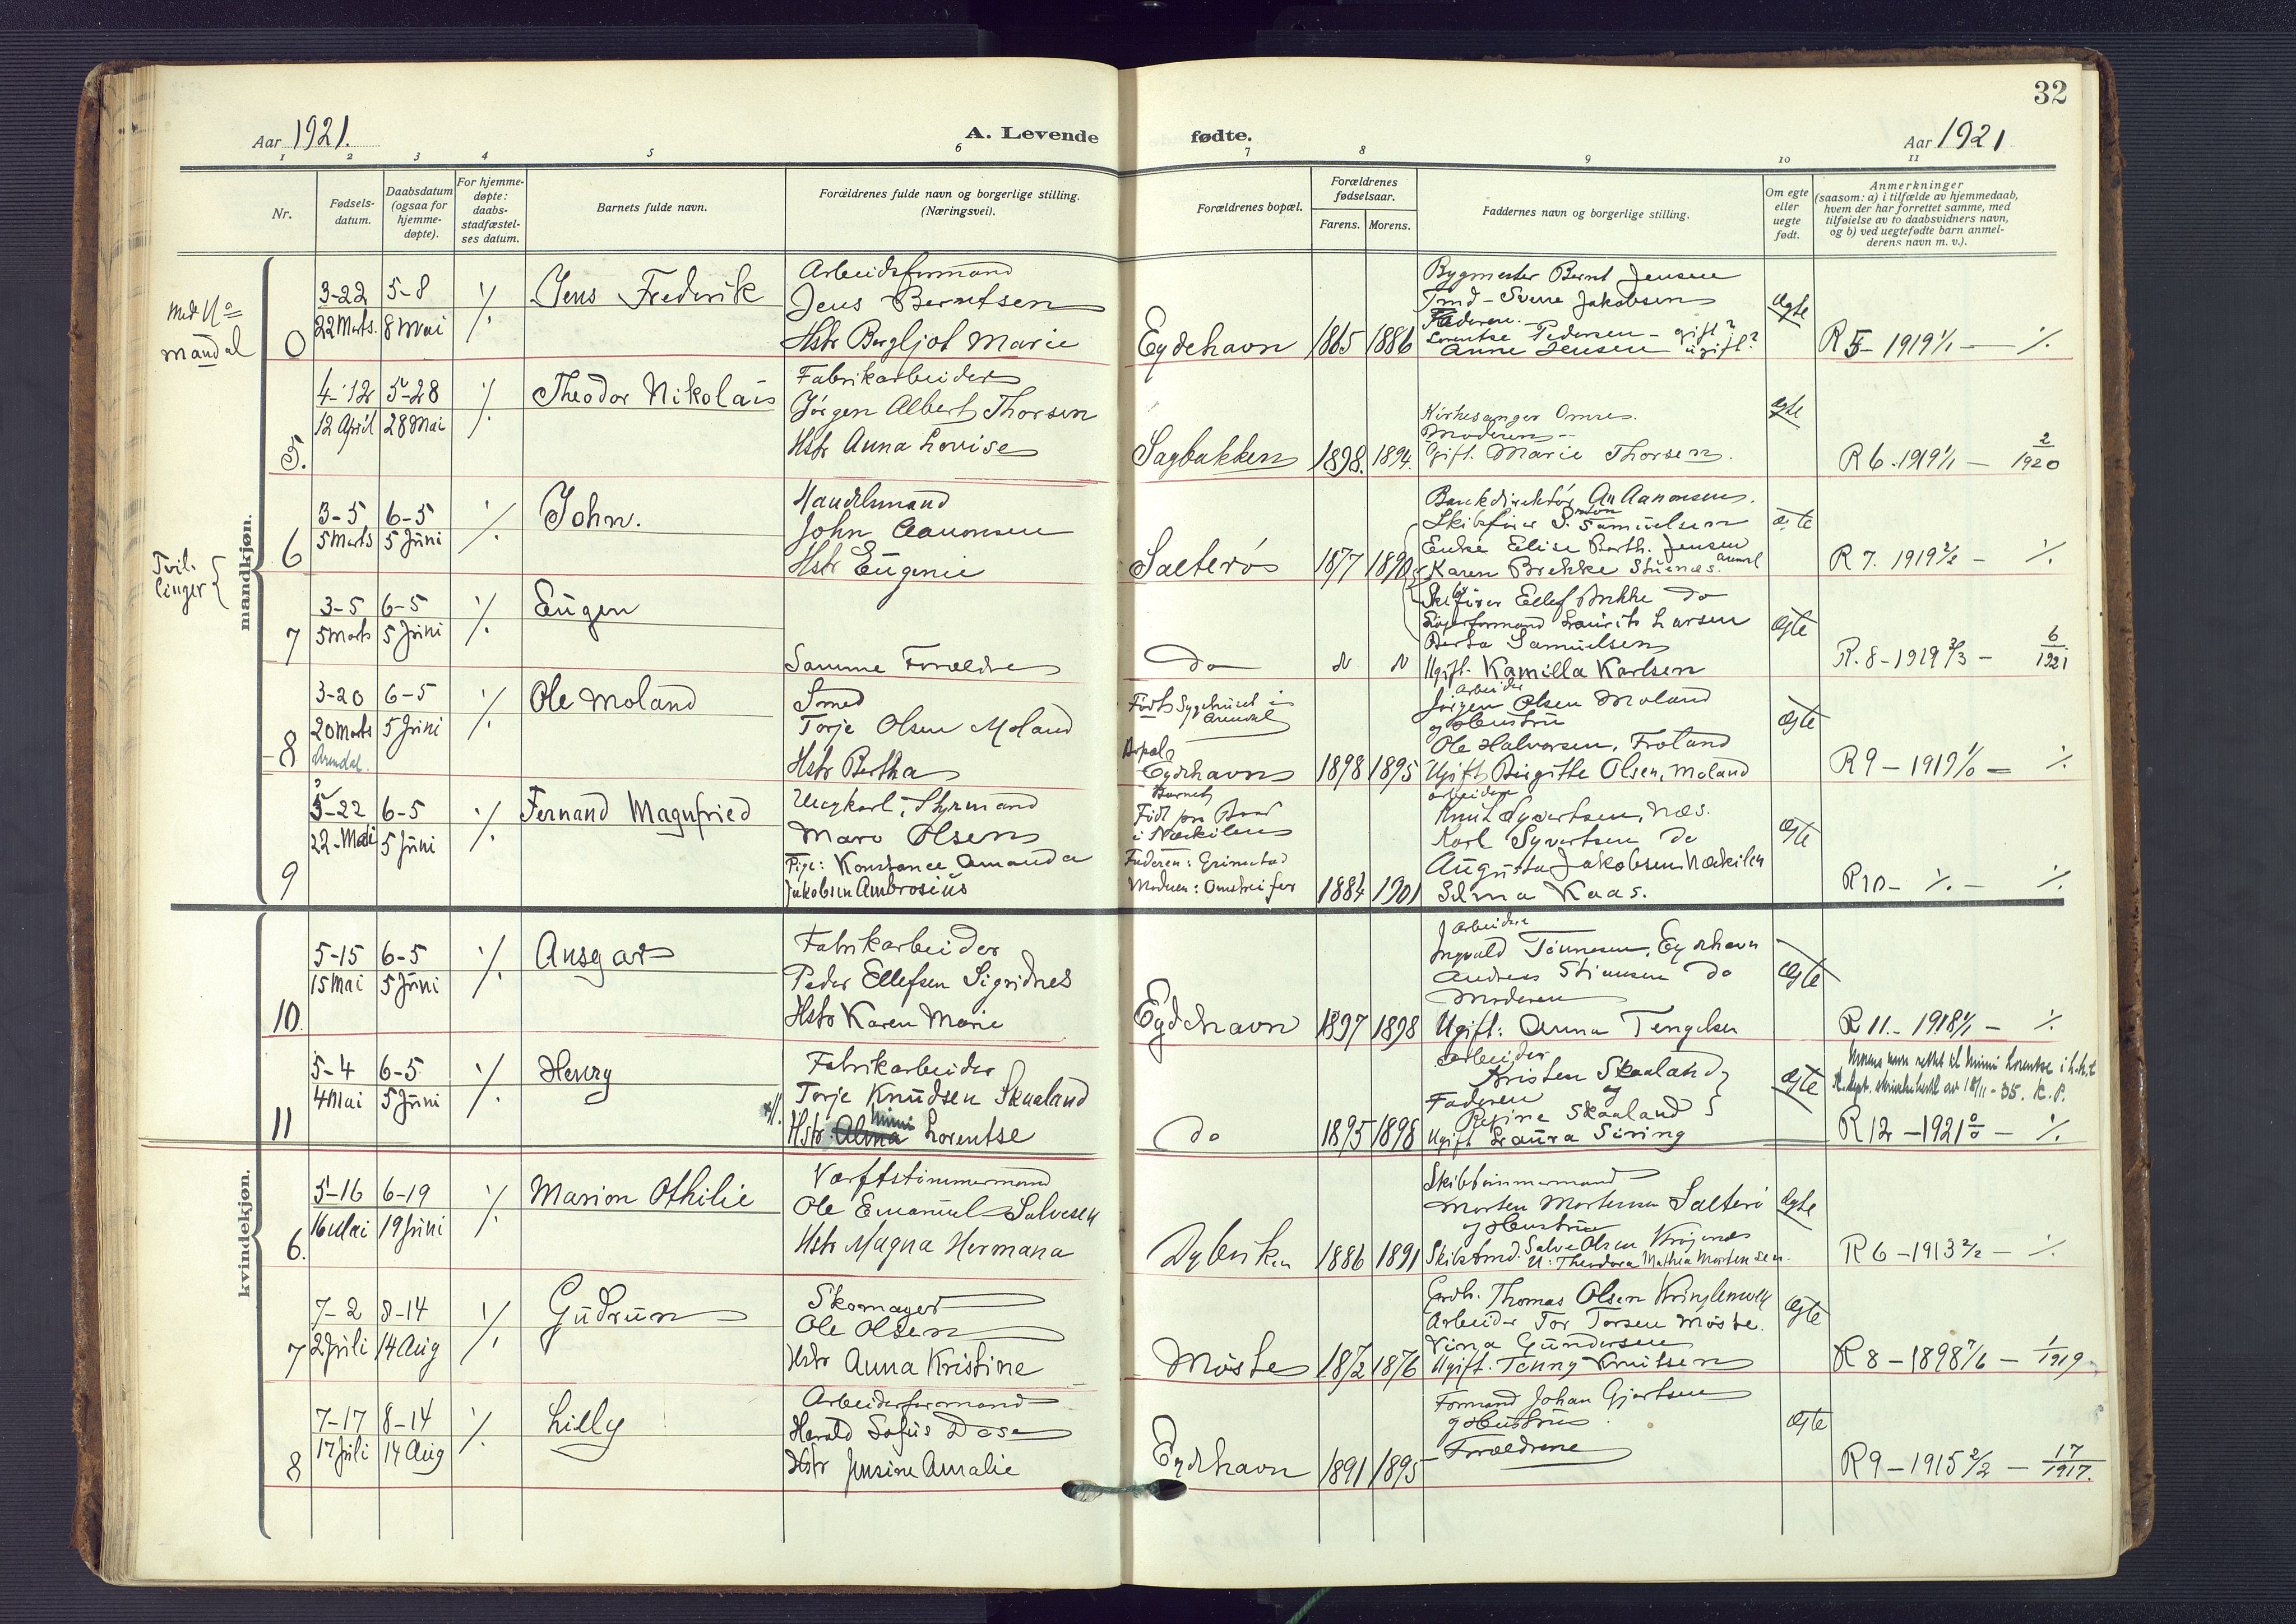 32
Aar 1921.
A. Levende
fødte.
Aar 1921
1 2 3 4 5 6 7 8 9 10 11
Nr.
Fødsels-
datum.
Daabsdatum
(ogsaa for
hjemme-
døpte).
For hjemme-
døpte:
daabs-
stadfæstel-
ses datum.
Barnets fulde navn.
Forældrenes fulde navn og borgerlige stilling.
(Næringsvei).
Forældrenes bopæl.
Forældrenes
fødselsaar.
Farens. Morens.
Faddernes navn og borgerlige stilling.
Om egte
eller
uegte
født.
Anmerkninger
(saasom: a) i tilfælde av hjemmedaab,
hvem der har forrettet samme, med
tilføielse av to daabsvidners navn,
og b) ved uegtefødte barn anmel-
derens navn m. v.).
mandkjøn.
0
3-22
22 Marts.
5-8
8 Mai
Jens Frederik
Arbeidsformand
Jens Berntsen
Hstr Bergljot Marie
Eydehavn
1865 1886
Bygmester Bernt Jensen
Tmd - Sverre Jakobsen
Faderen.
Lorentse Pedersen - gift?
Anne Jensen ugift?
Ægte
R 5 - 1919 1/1 - ./.
5.
4-12
12 April
5-28
28 Mai
Theodor Nikolais
Fabrikarbeider
Jørgen Albert Thorsen
Hstr Anna Lovise
Sagbakken
1898. 1894.
Kirkesanger Omre.
Moderen
Gift. Marie Thorsen.
Ægte
R 6 - 1919 1/1 - 2/1920
Tvil-
linger
6
3-5
5 Marts
6-5
5 Juni
John.
Handelsmand
John Aanonsen
Hstr Eugenie
Salterøs
1877 1890
Bankdirektør An Aanonsen.
Skibsfører S. Samuelsen
Enke Elise Barth. Jensen
Karen Brekke Stuenæs. Arendal
Ægte
R 7. 1919 2/2 - ./.
7
3-5
5 Marts
6-5
5 Juni
Eugen
Samme Forældre
do
Skibsfører Ellef Brekke do
Lagerformand Laurits Larsen
Berta Samuelsen
Ugift. Kamilla Karlsen
Ægte
R. 8 - 1919 3/3 - 6/1921
8
3-20
20 Marts
Arendal.
6-5
5 Juni
Ole Moland
Smed
Torje Olsen Moland
Hstr Bertha
Født Sygehuset i
Arendal
Bopæl
Eydehavn
1898 1895
Arbeider
Jørgen Olsen Moland
og Hustru
Ole Halvorsen, Froland
Ugift Birgitte Olsen, Moland
Ægte
R 9 - 1919 1/0 - ./.
9
5-22
22-Mai
6-5
5 Juni
Fernand Magnfried
Ungkarl, Styrmand
Maro Olsen
Pige: Konstance Amanda
Jakobsen Ambrosius
Barnet
Født
i Næskilen
Faderen: Grimstad
Moderen:
1884 1901
Arbeider
Knut Syvertsen, Næs.
Karl Syvertsen do
Augusta Jakobsen Næskilen
Selma Kaas.
R 10 - ./. - ./.
10
5-15
15 Mai
6-5
5 Juni
Ansgar
Fabrikarbeider
Peder Ellefsen Sigridnes
Hstr Karen Marie
Eydehavn
1897 1898
Arbeider
Ingvald Tønnesen, Eydehavn
Andreas Stiansen do
Moderen
Ugift: Anna Tengelsen
Ægte
R 11 - 1918 1/1 - ./.
11
5-4
4 Mai
6-5
5 Juni
Henry
Fabrikarbeider
Torje Knudsen Skaaland
Hstr Alma Mimi Lorentse
do
1895 1898
Arbeider
Kristen Skaaland
og
Faderen
Regine Skaaland
Ugift Laura Siring
Ægte
Morens navn rettet til Mimi Lorentse i h. h. t.
R 12 - 1921 0/0 - ./.
kvindekjøn.
6.
5-16
16 Mai
6-19
19 Juni
Marion Othilie
Værftstømmermand
Ole Emanuel Salvesen
Hstr Magna Hermana
Dybvik
1886 1891
Skibstømmermand
Morten Mortensen Salterø
og Hustru
Skibstmd. Salve Olsen
U: Theodora Mathea Mortensen.
Ægte
R 6 - 1913 2/2 - ./.
7
7-2
2 Juli
8-14
14 Aug
Gudrun
Skomager
Ole Olsen
Hstr Anna Kristine
Møste
1872 1876
Grdb. Thomas Olsen Kringlemoen
Arbeider Tor Torsen Møste.
Nina Gundersen
Ugift. Tenny Knutsen
Ægte
R 8 - 1898 7/6 - 1/1919
8
7-17
17 Juli
8-14
14 Aug
Lilly
Arbeiderformand
Harald Sofus Dase
Hstr Jensine Amalie
Eydehavn
1891 1895
Formand Johan Gjertsen
og Hustru
Forældrene
Ægte
R 9 - 1915 2/2 - 17/1917.